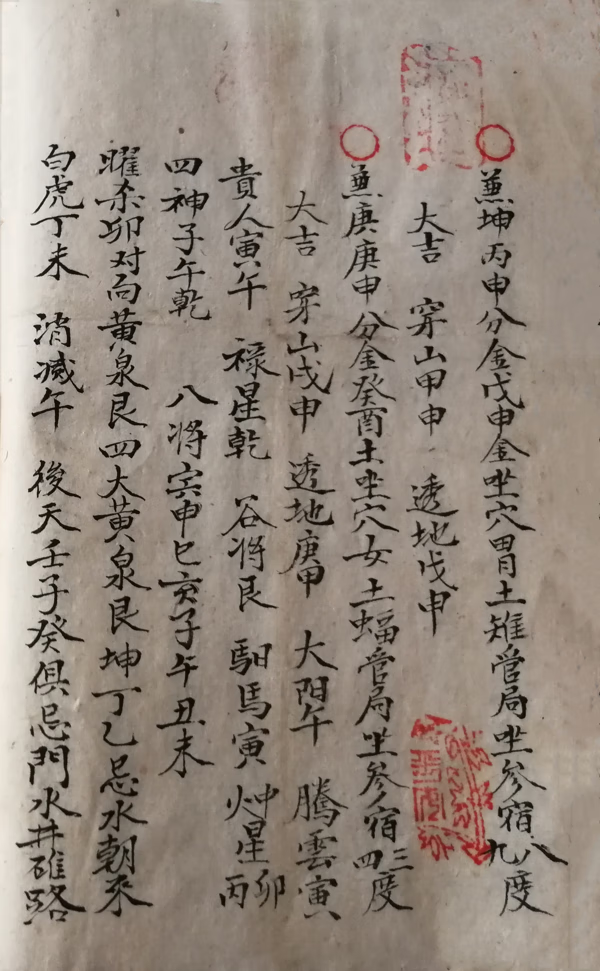 ○兼坤丙申分金戊申金坐穴胃土雉管局坐参宿八九度
大吉 穿山甲申 透地戊申
○兼庚庚申分金癸酉土坐穴女土蝠管局坐参宿三四度
大吉 穿山戊申 透地庚申 大阳午 騰雲寅
貴人寅午 禄星乾 谷将艮 馹馬寅 星卯丙
四神子午乾 八将寅申巳亥子午丑未
曜杀卯对向黄泉艮四大黄泉艮坤丁乙忌水朝来
白虎丁未 消滅午 後天壬子癸俱忌門水井碓路